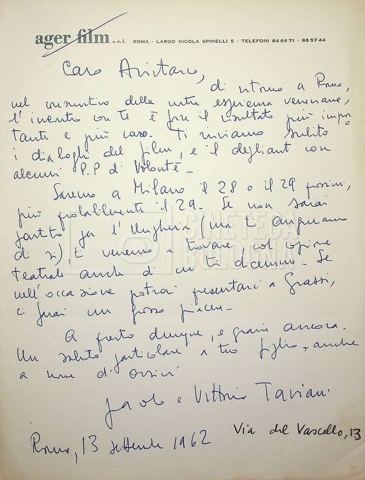 ager film s.r.l. ROMA - LARGO NICOLA SPINELLI 5 - TELEFONI 846671 - 865744
Caro Aristarco,
di ritorno a Roma,
nel consuntivo della nostra esperienza veneziana,
l'incontro con te è forse il risultato più impor
tante e più caro. Ti inviamo subito
i dialoghi del film, e il dépliant con
alcuni P.P. di Volonté.
Saremo a Milano il 28 o il 29 prossimi,
più probabilmente il 29. Se non sarai
partito per l'Ungheria (ma ti auguriamo
di sì) ti verremo a trovare col copione
teatrale anche di cui ti dicemmo. Se
nell'occasione potrai presentarci a Grassi,
ci farai un grosso piacere.
A presto dunque, e grazie ancora.
Un saluto particolare a tuo figlio, anche
a nome di Orsini
Paolo e Vittorio Taviani
Roma, 13 settembre 1962 Via del Vascello, 13
CINETECA
BOLOGNA